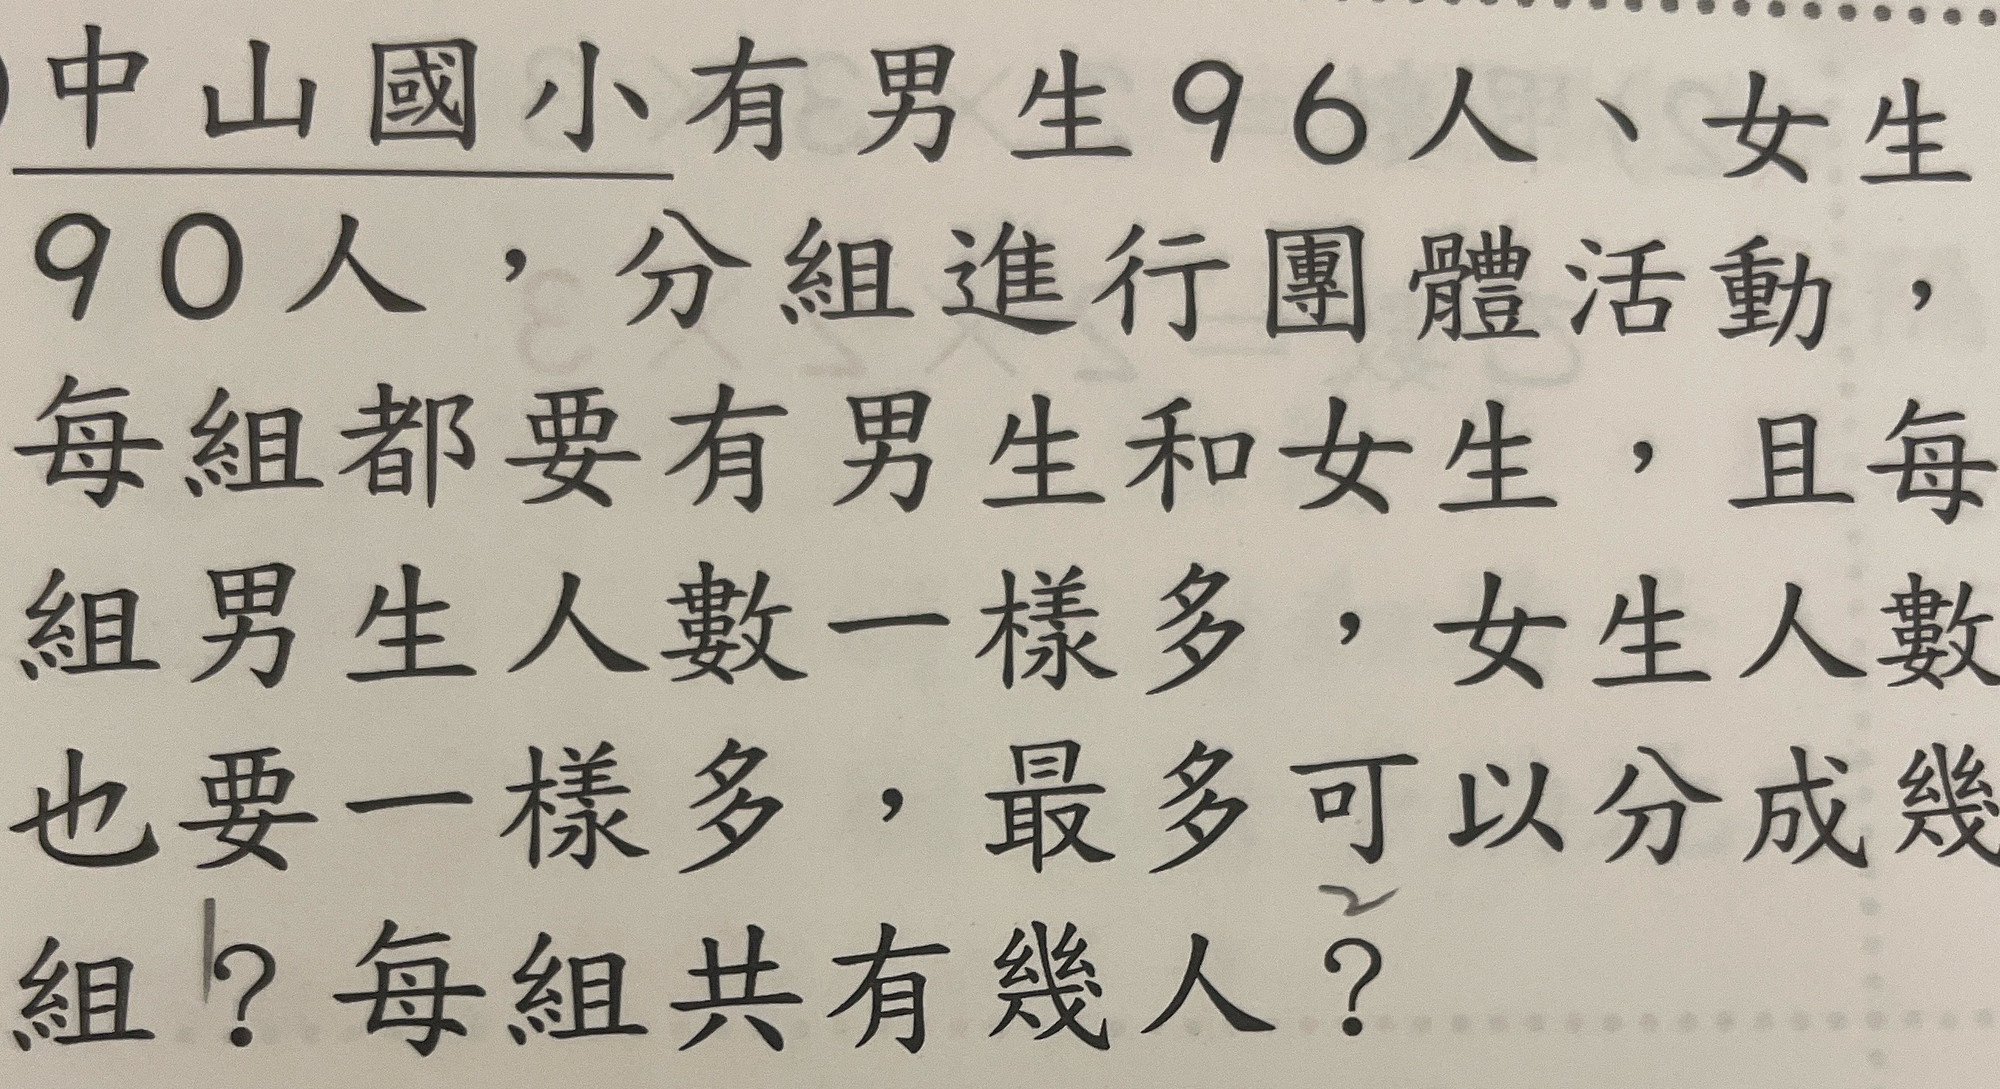 中山國小有男生96人、女生
90人，分組進行團體活動，
每組都要有男生和女生，且每
組男生人數一樣多，女生人數
也要一樣多，最多可以分成幾
組？每組共有幾人？